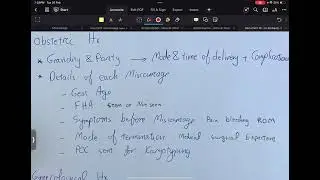 Obstetric Hx
* Gravidity & Parity → Mode & time of delivery + Complications
* Details of each Miscarriage
- Gest Age
- FHA seen or Not seen
- Symptoms before Miscarriage Pain bleeding ROM
- Mode of termination: Medical surgical Expectant
- POC sent for Karyotyping
Gynecological Hx